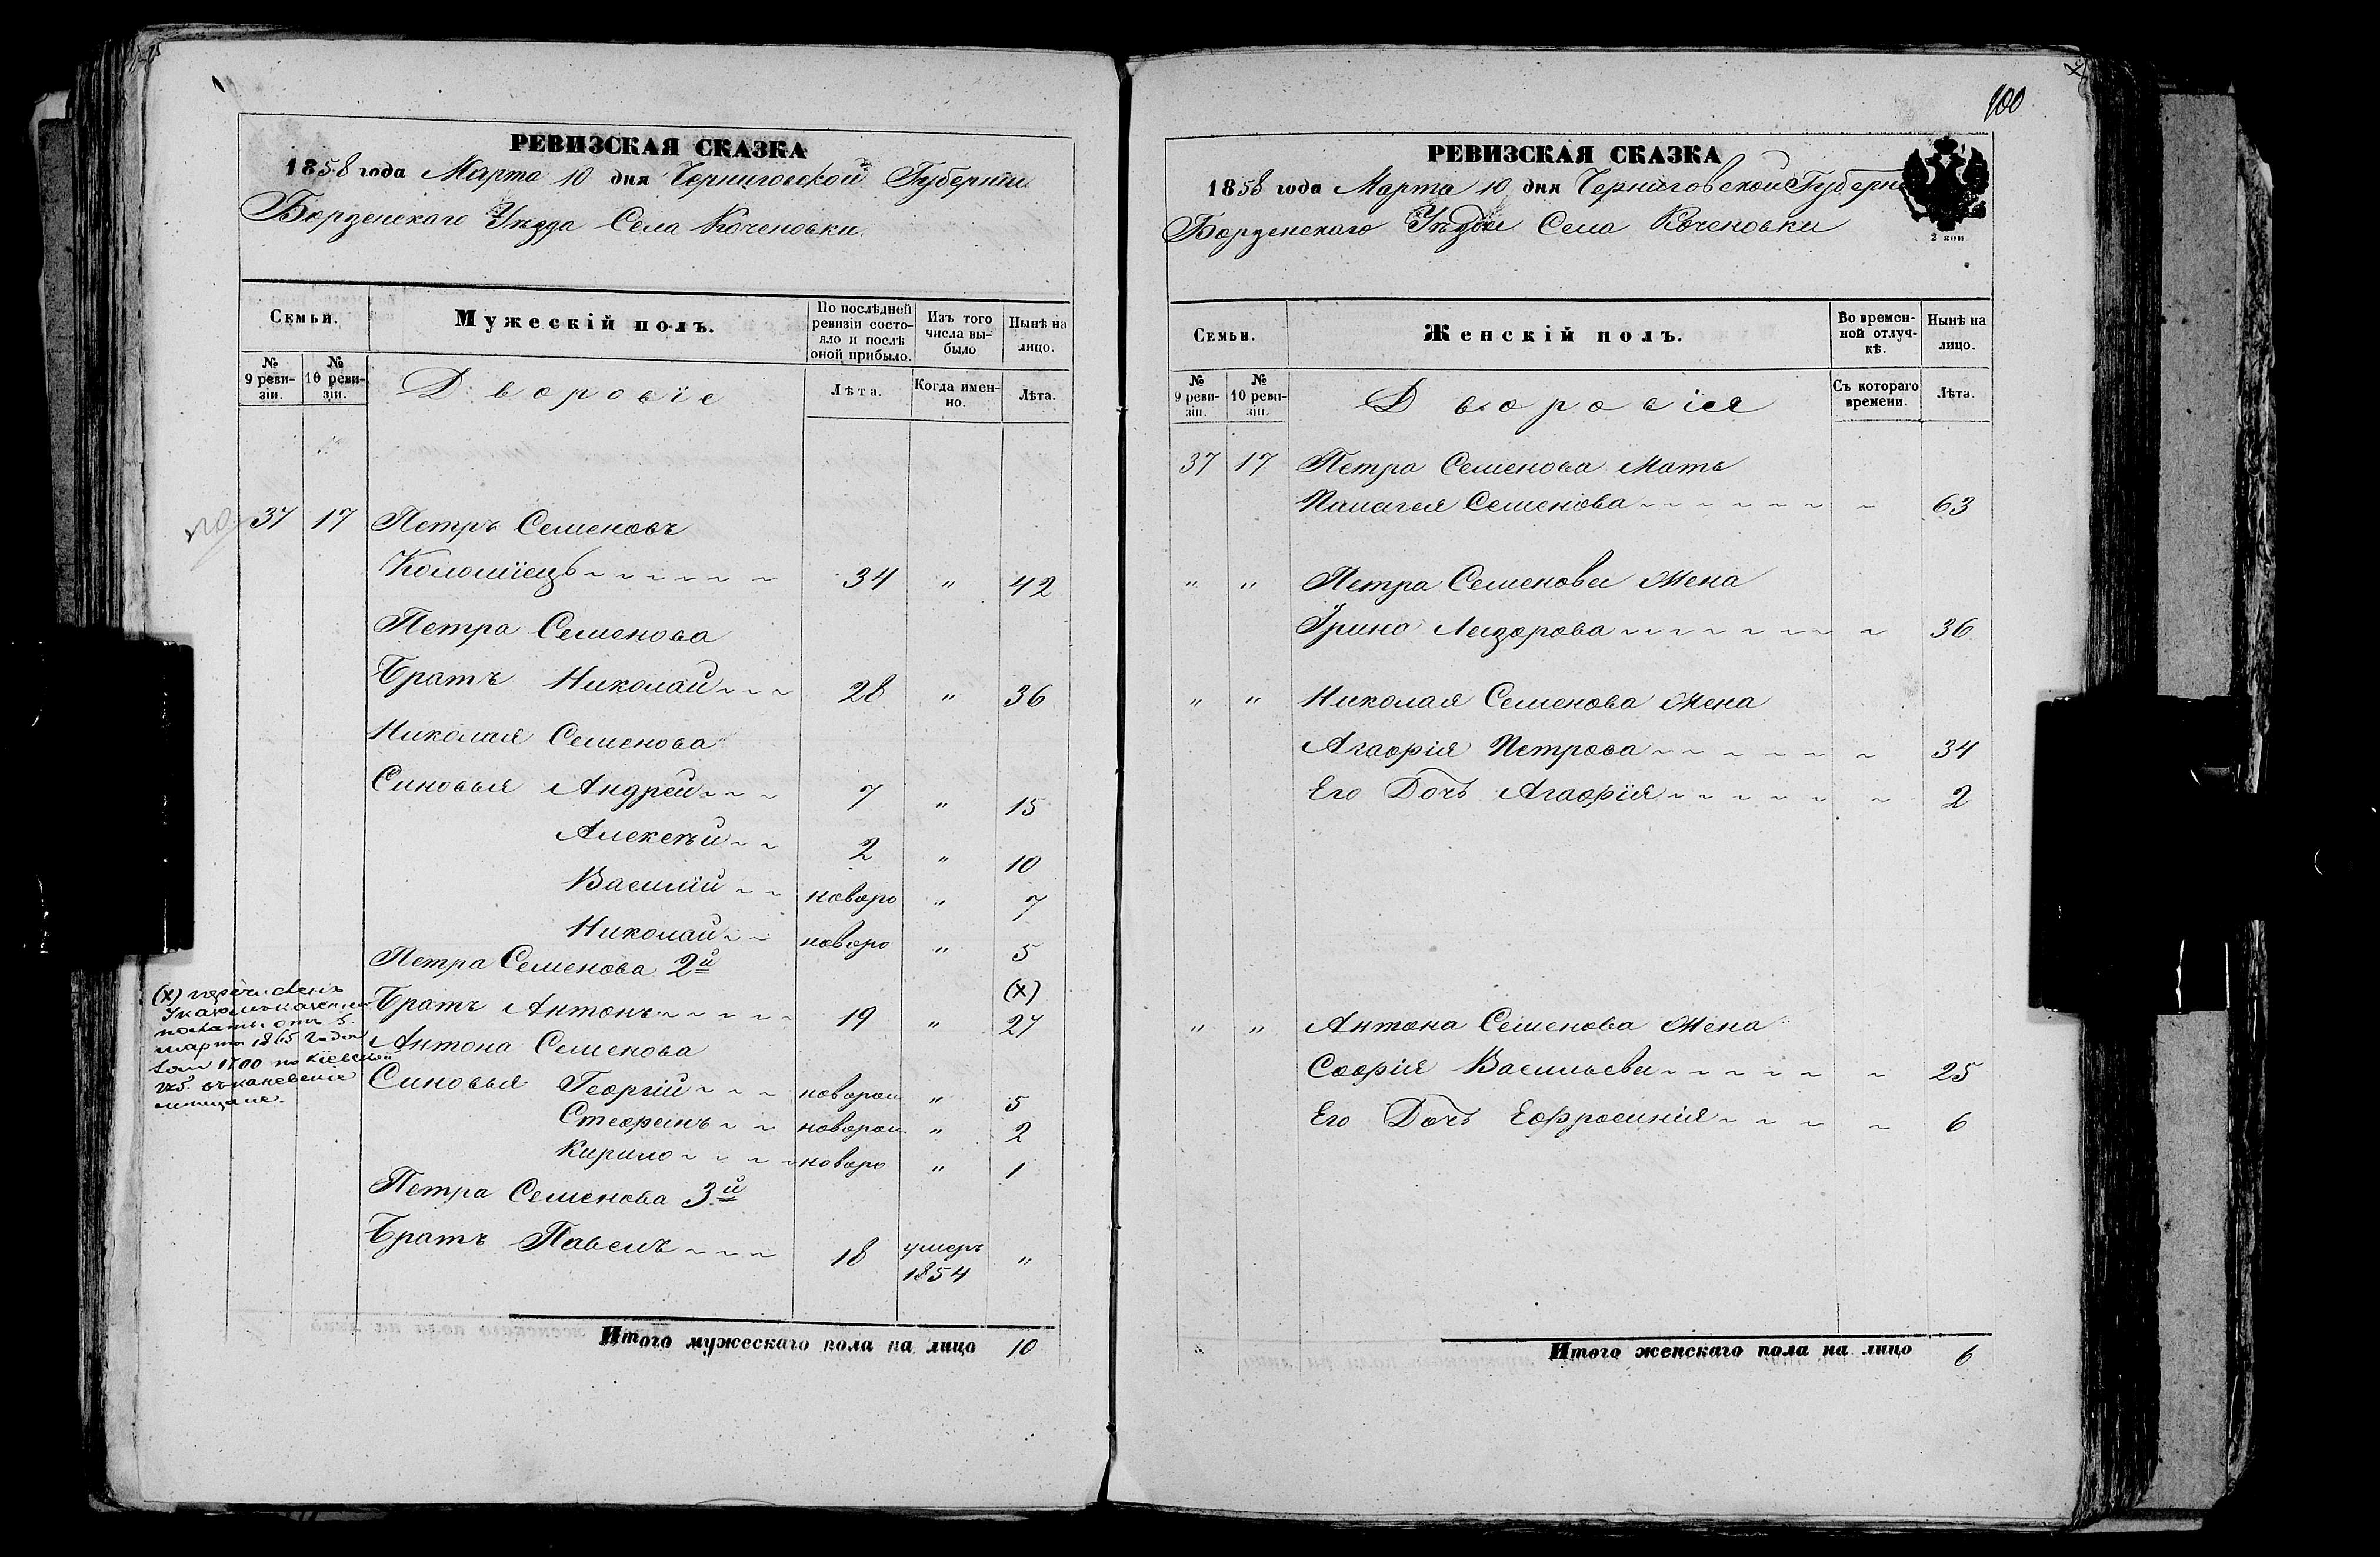 РЕВИЗСКАЯ СКАЗКА
1858 года Марта 10 дня Черниговской Губерніи
Борзенскаго Уѣзда Села Коченовки
Семьи.
Мужескій полъ.
По послѣдней ревизіи состояло и послѣ оной прибыло.
Изъ того числа выбыло
Нынѣ на лицо.
№ 9 ревизіи.
№ 10 ревизіи.
Дворовіе
Лѣта.
Когда именно.
Лѣта.
37 17 Петръ Семеновъ
Коломіецъ 34 " 42
Петра Семенова
Братъ Николай 28 " 36
Николая Семенова
Синовья Андрей 7 " 15
Алексѣй 2 " 10
Василій новоро " 7
Николай новоро " 5
Петра Семенова 2й
(х)
Братъ Антонъ 19 " 27
Антона Семенова
Синовья Георгій новорож " 5
Стефанъ новорож " 2
Кирило новоро " 1
Петра Семенова 3й
Братъ Павелъ 18 умеръ 1854 "
Итого мужескаго пола на лицо 10
(х) перечисленъ
палаты отъ 5
марта 1865 года
1700 по Кіевской
губ.
мещане.
100
РЕВИЗСКАЯ СКАЗКА
1858 года Марта 10 дня Черниговской Губерн
Борзенскаго Уѣзда Села Коченовки
2 коп
Семьи.
Женскій полъ.
Во временной отлучкѣ.
Нынѣ на лицо.
№ 9 ревизіи.
№ 10 ревизіи.
Дворовія
Съ котораго времени.
Лѣта.
37 17 Петра Семенова Мать
Палагея Семенова 63
" " Петра Семенова Жена
Ірина Лазорова 36
" " Николая Семенова Жена
Агафія Петрова 34
Его Дочь Агафія 2
" " Антона Семенова Жена
Софія Васильева 25
Его Дочь Ефросинія 6
Итого женскаго пола на лицо 6